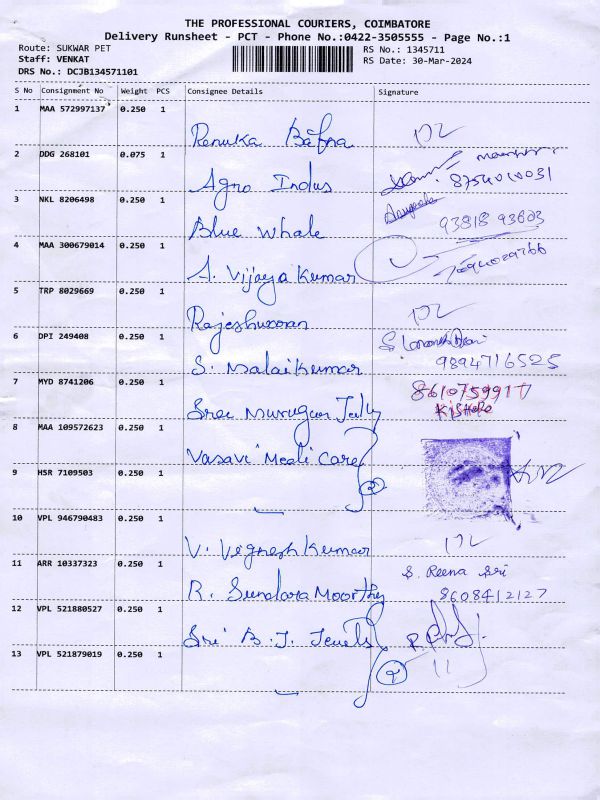 THE PROFESSIONAL COURIERS, COIMBATORE
Delivery Runsheet - PCT - Phone No.:0422-3505555 - Page No.:1
Route: SUKWAR PET
RS No.: 1345711
Staff: VENKAT
RS Date: 30-Mar-2024
DRS No.: DCJB134571101
S No Consignment No Weight PCS Consignee Details Signature
1 MAA 572997137 0.250 1
Renuka Bafna
2 DDG 268101 0.075 1
Agro Indus 8754010031
3 NKL 8206498 0.250 1
Blue Whale 93818 93603
4 MAA 300679014 0.250 1
A. Vijaya Kumar
5 TRP 8029669 0.250 1
Rajeshwaran
6 DPI 249408 0.250 1
S. Malaikumar 9894716525
7 MYD 8741206 0.250 1 8610759917
Kishore
Sree Murugan
8 MAA 109572623 0.250 1
Vasavi Medi Care
9 HSR 7109503 0.250 1
2
10 VPL 946790483 0.250 1
V. Vignesh Kumar
11 ARR 10337323 0.250 1 S. Reena Sri
R. Sundara Moorthy 8608412127
12 VPL 521880527 0.250 1
Sri B.J. Jewels
13 VPL 521879019 0.250 1